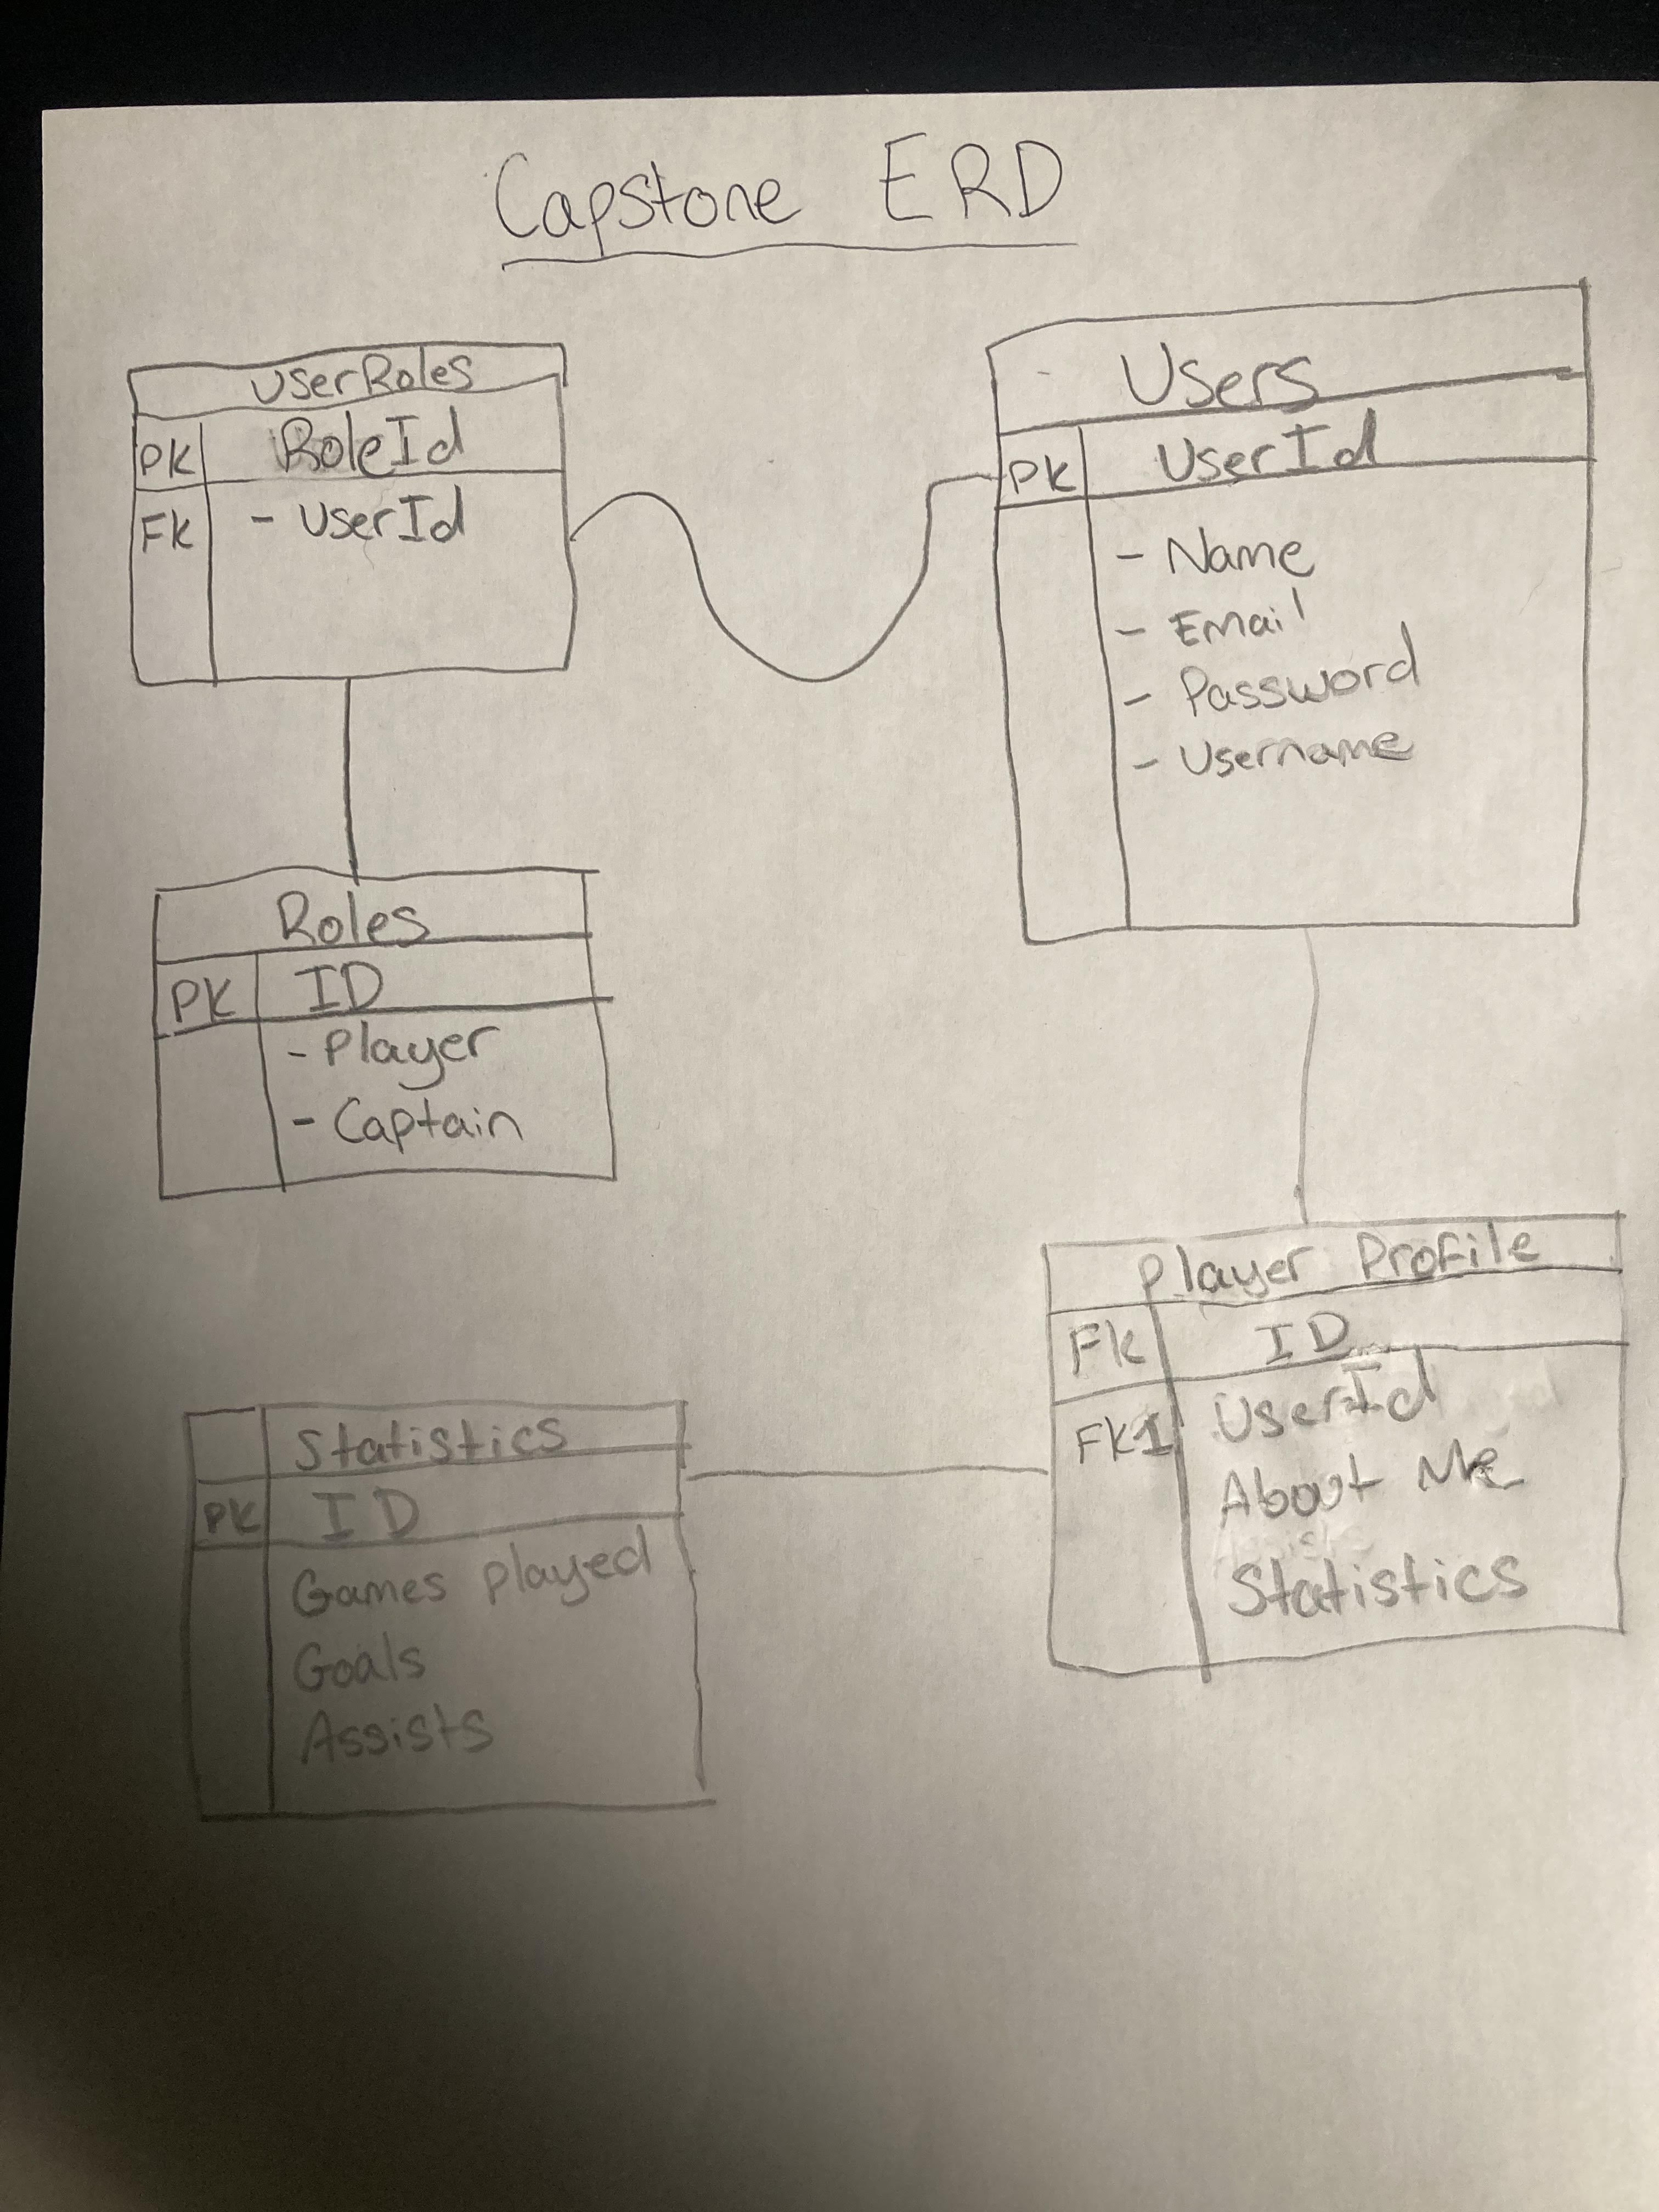 Capstone ERD
UserRoles
PK RoleId
FK - UserId
Users
PK UserId
- Name
- Email
- Password
- Username
Roles
PK ID
- Player
- Captain
Player Profile
FK ID
FK1 UserId
About Me
Statistics
Statistics
PK ID
Games played
Goals
Assists